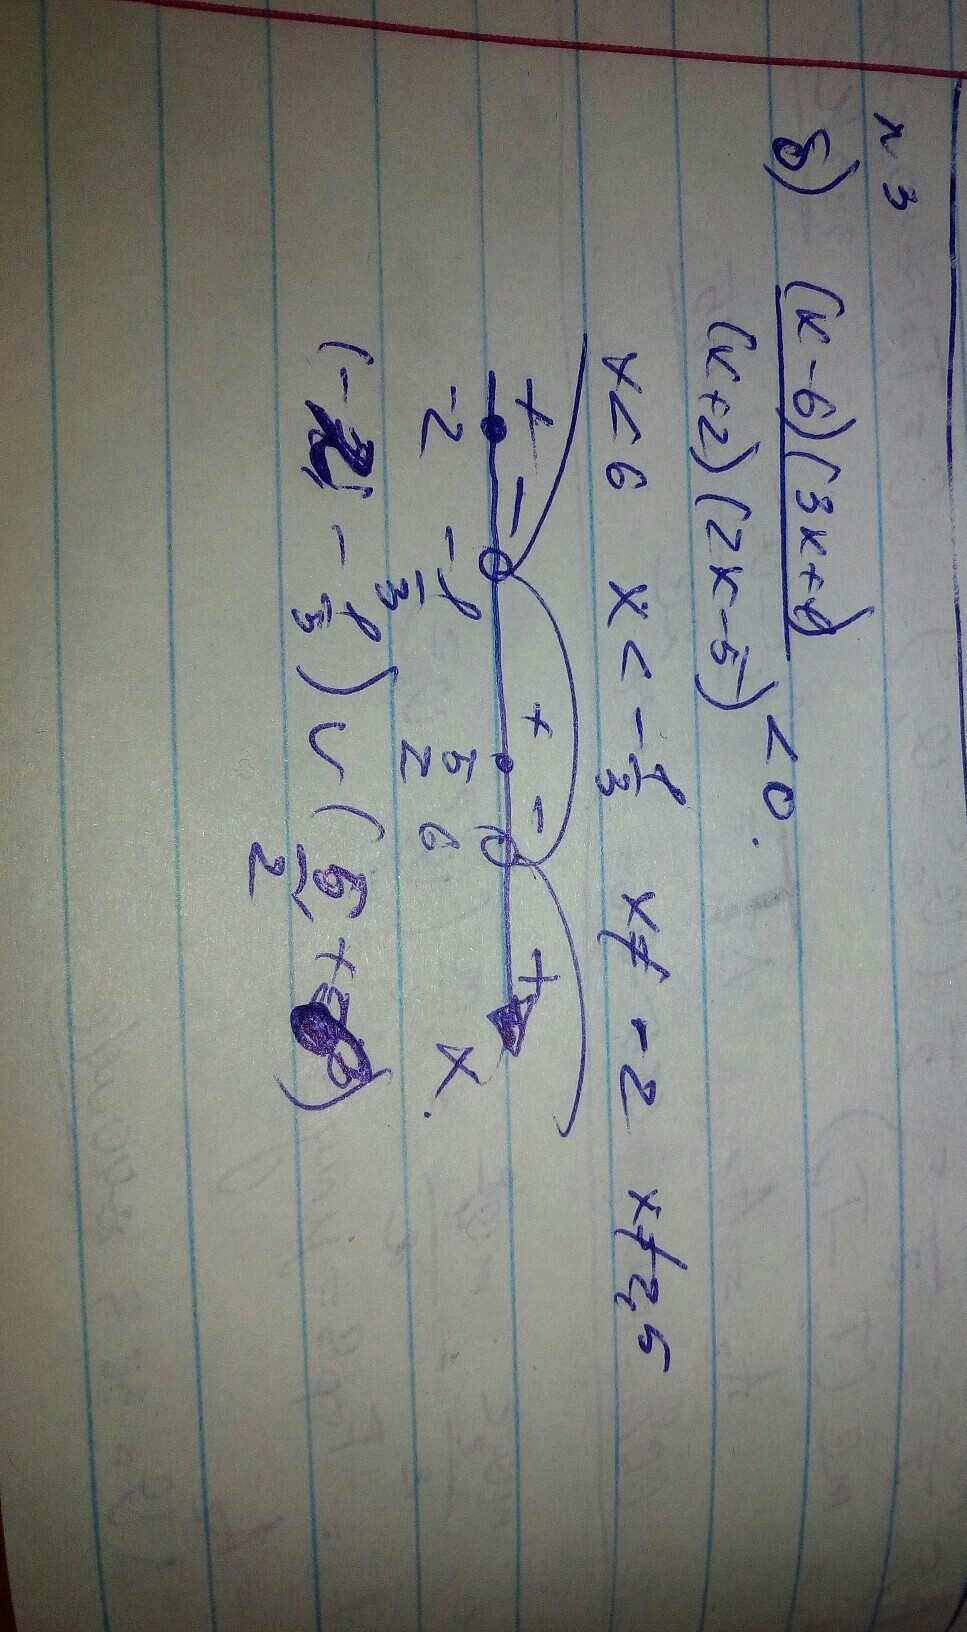 N 3
б) (x-6)(3x+1)
(x+2)(2x-5) < 0.
x<6 x<-1/3 x≠-2 x≠2,5
+ - + - +
-2 -1/3 5/2 6 x.
(-2; -1/3) ∪ (5/2; + )